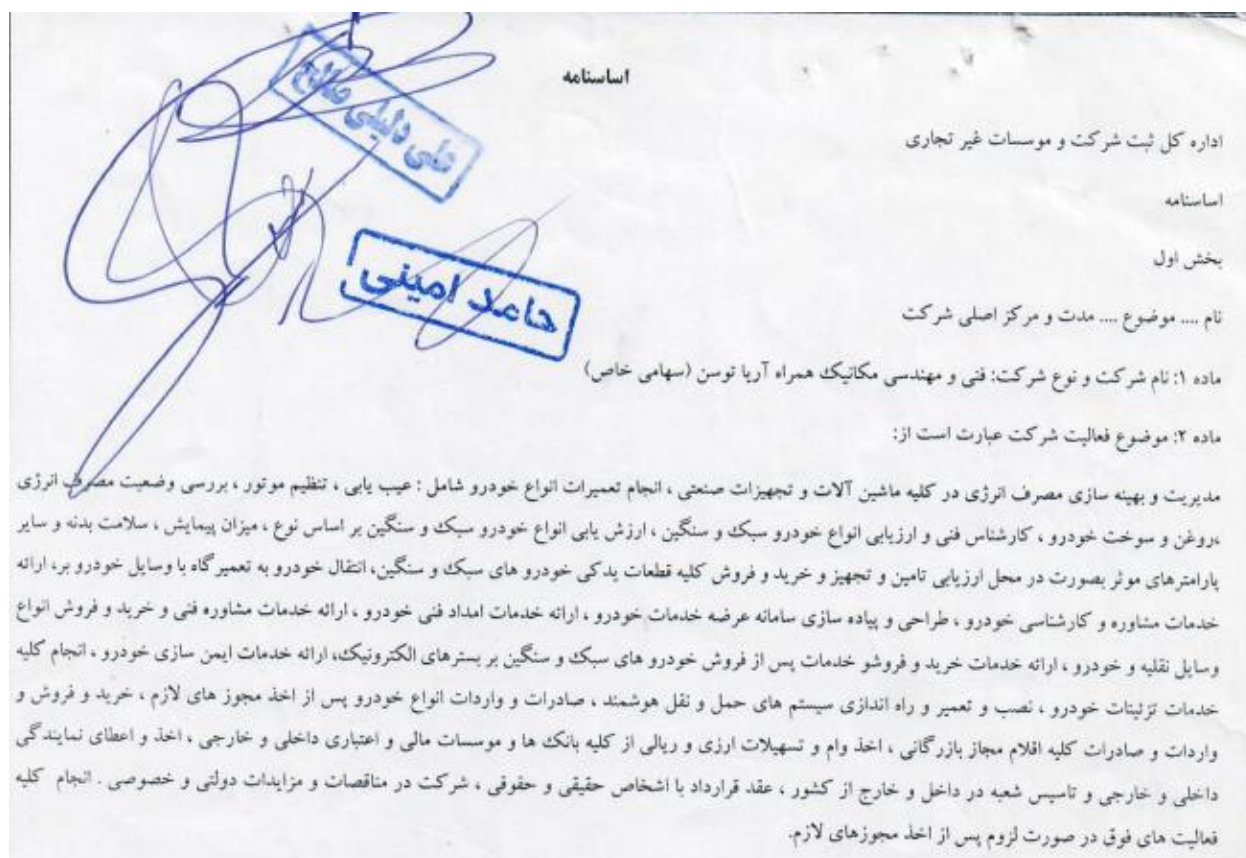 اساسنامه
علی دلیلی صالح
اداره کل ثبت شرکت و موسسات غیر تجاری
اساسنامه
بخش اول
حامد امینی
نام .... موضوع .... مدت و مرکز اصلی شرکت
ماده ۱: نام شرکت و نوع شرکت: فنی و مهندسی مکانیک همراه آریا توسن (سهامی خاص)
ماده ۲: موضوع فعالیت شرکت عبارت است از:
مدیریت و بهینه سازی مصرف انرژی در کلیه ماشین آلات و تجهیزات صنعتی ، انجام تعمیرات انواع خودرو شامل : عیب یابی ، تنظیم موتور ، بررسی وضعیت مصرف انرژی
،روغن و سوخت خودرو ، کارشناس فنی و ارزیابی انواع خودرو سبک و سنگین ، ارزش یابی انواع خودرو سبک و سنگین بر اساس نوع ، میزان پیمایش ، سلامت بدنه و سایر
پارامترهای موثر بصورت در محل ارزیابی تامین و تجهیز و خرید و فروش کلیه قطعات یدکی خودرو های سبک و سنگین، انتقال خودرو به تعمیرگاه با وسایل خودرو بر، ارائه
خدمات مشاوره و کارشناسی خودرو ، طراحی و پیاده سازی سامانه عرضه خدمات خودرو ، ارائه خدمات امداد فنی خودرو ، ارائه خدمات مشاوره فنی و خرید و فروش انواع
وسایل نقلیه و خودرو ، ارائه خدمات خرید و فروشو خدمات پس از فروش خودرو های سبک و سنگین بر بسترهای الکترونیک، ارائه خدمات ایمن سازی خودرو ، انجام کلیه
خدمات تزئینات خودرو ، نصب و تعمیر و راه اندازی سیستم های حمل و نقل هوشمند ، صادرات و واردات انواع خودرو پس از اخذ مجوز های لازم ، خرید و فروش و
واردات و صادرات کلیه اقلام مجاز بازرگانی ، اخذ وام و تسهیلات ارزی و ریالی از کلیه بانک ها و موسسات مالی و اعتباری داخلی و خارجی ، اخذ و اعطای نمایندگی
داخلی و خارجی و تاسیس شعبه در داخل و خارج از کشور ، عقد قرارداد با اشخاص حقیقی و حقوقی ، شرکت در مناقصات و مزایدات دولتی و خصوصی . انجام کلیه
فعالیت های فوق در صورت لزوم پس از اخذ مجوزهای لازم.